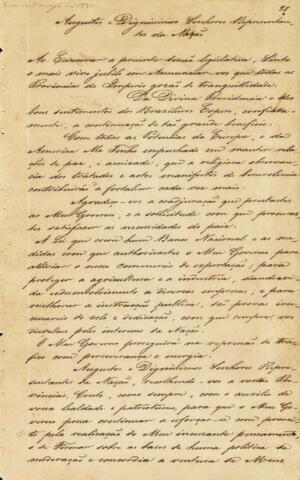 Augustos e Dignissimos Senhores Representan-
tes da Nação
Ao Encerrar a presente sessão legislativa, Sinto
o mais vivo jubilo em Annunciar vos que todas as
Provincias do Imperio gozão de tranquilidade.
Da Divina Providencia e dos
bons sentimentos dos Brasileiros Espero, confiada-
mente, a continuação de tão grande beneficio.
Com todas as Potencias da Europa, e da
America Me Tenho empenhado em manter rela
ções de paz, e amizade, que a religiosa observan
cia dos tratados e actos manifestos de benevolencia
contribuirão a fortalecer cada vez mais.
Agradeço-vos a coadjuvação que prestastes
ao Meu Governo, e a sollicitude com que procuras
tes satisfazer as necessidades do paiz.
A Lei que creou hum Banco Nacional e as me
didas com que authorisastes o Meu Governo para
alliviar o nosso commercio de exportação, para
proteger a agricultura e a industria, dando
desenvolvimento a diversas emprezas, e para
melhorar a instrucção publica, são provas irre
cusaveis do zelo e dedicação, com que sempre vos
desvelaes pelos interesses da Nação.
O Meu Governo proseguirá na repressão do tra
fico com perseverança e energia.
Augustos e Dignissimos Senhores Repre
sentantes da Nação, recolhendo-vos a vossas Pro
vincias, Conto, como sempre, com o auxilio de
vossa lealdade e patriotismo, para que o Meu Go
verno possa continuar a esforçar-se com provei
to pela realisação do Meu incessante pensamento,
o de Firmar sobre as bases de huma politica de
moderação e concordia a ventura de Meus